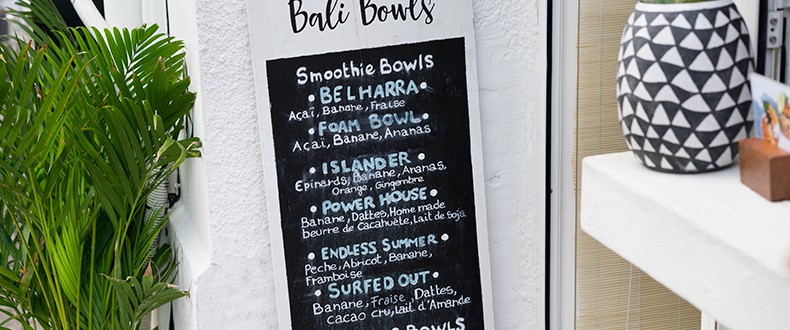 Bali Bowls
Smoothie Bowls
• BELHARRA •
Açaï, Banane, Fraise
• FOAM BOWL •
Açaï, Banane, Ananas
• ISLANDER •
Epinards, Banane, Ananas,
Orange, Gingembre
• POWER HOUSE •
Banane, Dattes, Home made
beurre de Cacahuète, Lait de Soja
• ENDLESS SUMMER •
Peche, Abricot, Banane,
Framboise
• SURFED OUT •
Banane, Fraise, Dattes,
Cacao cru, lait d'Amande
BOWLS